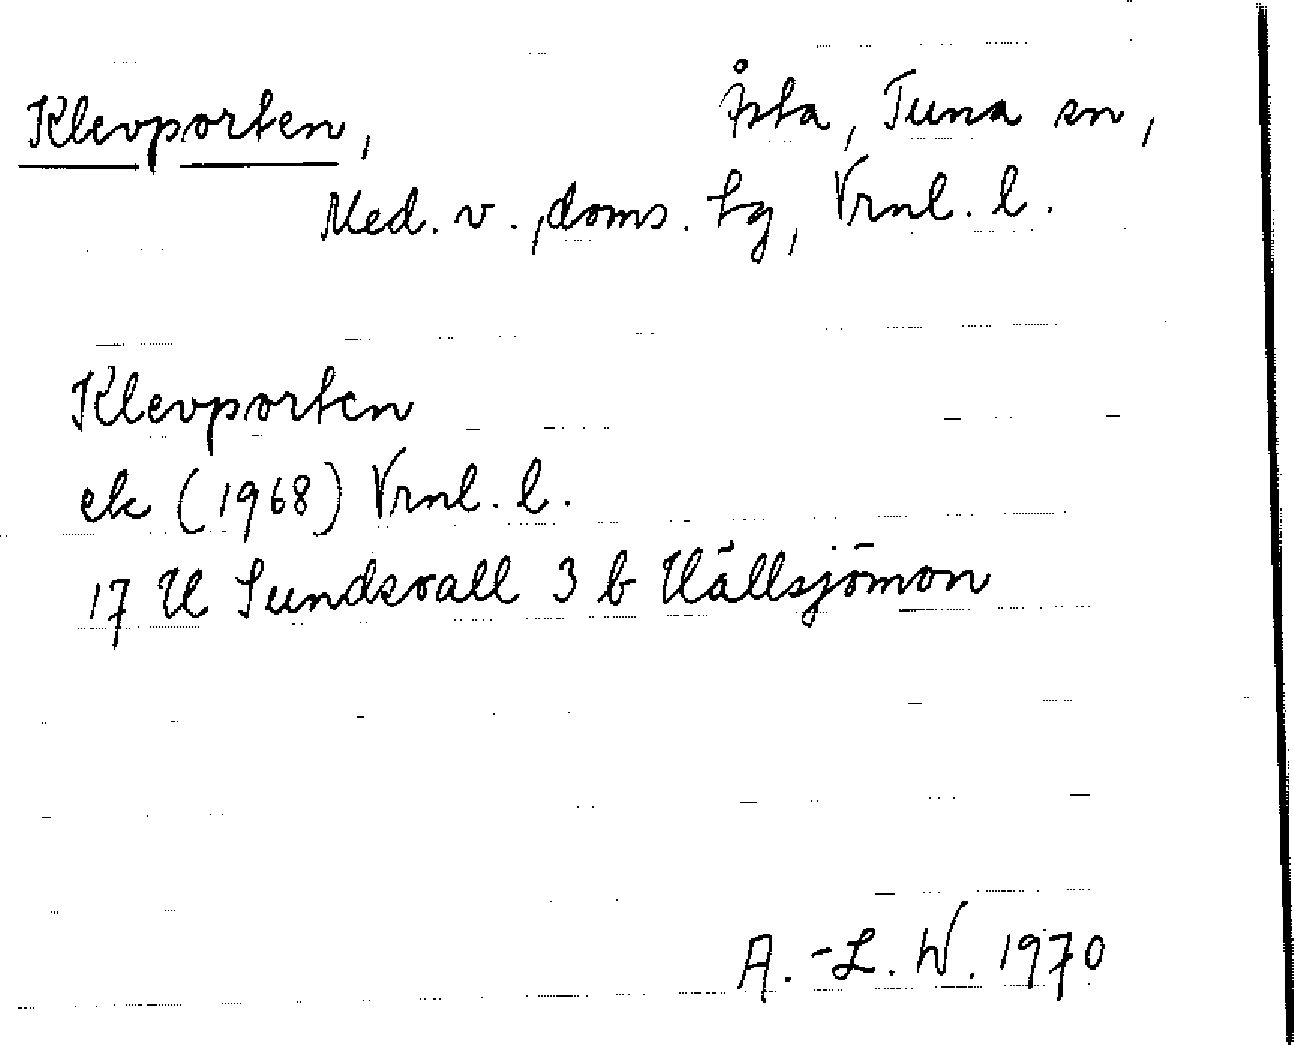 Klevporten, Åsta, Tuna sn,
Med. v., doms. hg, Vrnl. l.
Klevporten
ek (1968) Vrnl. l.
17 H Sundsvall 3 b Hällsjömon
A.-L. W. 1970